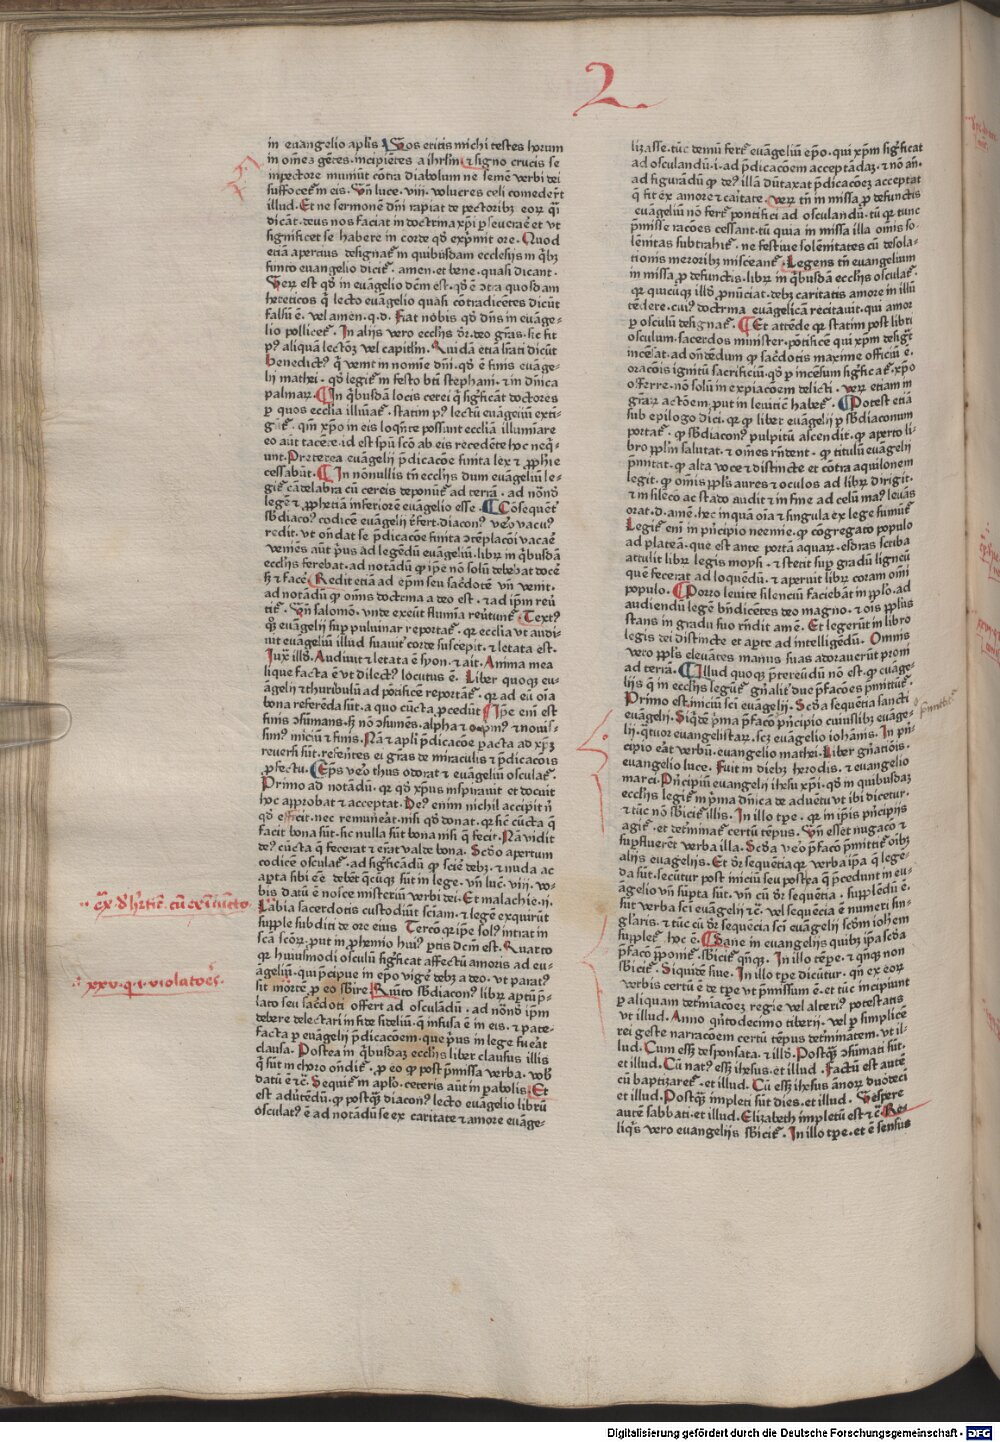 2
in euangelio aplis Vos eritis michi testes horum
in om̃ea gẽtes·incipiẽtes a ihrlm̃ ⁊ signo crucis se
in pectore muniũt cõtra diabolum ne semẽ verbi dei
suffocet᷑ in eis. Vñ luce. viij. volucres celi comeder̃t
illud. Et ne sermonẽ dñi rapiat de pectoribꝫ eoꝝ q̃i
dicãt. deus nos faciat in doctrina xp̃i ꝑseuerare et vt
significet se habere in corde qḋ exp̃mit ore. Quod
etiã apercius designat᷑ in quibusdam ecclesijs in q̃bꝫ
finito euangelio dicit᷑. amen. et bene. quasi dicant.
Verũ est qḋ in euãgelio dcm̃ est. qḋ ẽ ↄtra quosdam
hereticos q̃ lecto euãgelio quasi cõtradicẽtes dicũt
falsũ ẽ. vel amen. q. d. Fiat nobis qḋ dñs in euãge-
lio pollicet᷑. In alijs vero ecclijs dr̃. deo gr̃as. sic fit
pꝰ aliquã lectõꝫ vel capitlm̃. Quidã etiã lrati dicũt
benedictꝰ q̃ venit in nomie dñi. qḋ ẽ finis euãge-
lij mathei. qḋ legit᷑ in festo bti stephani. ⁊ in dñica
palmaꝝ. In q̃busdã locis cerei q̃ sigñficãt doctores
per quos ecclia illuĩat᷑. statim pꝰ lectũ euãgeliũ exti-
gũt᷑. qm̃ xp̃o in eis loq̃nte possunt eccliã illumĩare
eo aũt tacẽte. id est spũ scõ ab eis recedẽte hoc neq̃-
unt. Preterea euãgelij p̃dicacõe finita lex ⁊ ꝓph̃ie
cessabũt. In nõnullis tñ ecclijs dum euãgeliũ le-
git᷑ cãdelabra cũ cereis deponũt᷑ ad terrã. ad nõnḋ
legẽ ⁊ ꝓph̃etiã inferiorẽ euãgelio esse. Cõsequẽt᷑
sb̃diacoꝰ codicẽ euãgelij r̃fert. diacoñꝰ veꝛo vacuꝰ
redit. vt oñdat se p̃dicacõe finita ↄtẽplacõi vacar̃.
veniẽs aũt p̃us ad legẽdũ euãgeliũ. libꝝ in q̃busdã
ecclijs ferebat. ad notãdũ ꝙ ip̃e nõ solũ debebat docẽ
sꝫ ⁊ facẽ. Redit etiã ad ep̃m seu sacẽdotẽ vñ venit.
ad notãdũ ꝙ om̃s doctrina a deo est. ⁊ ad ip̃m reũ
tit᷑. Vñ salomõ. vnde exeũt flumĩa reũtunt᷑. Textꝰ
qꝫ euãgelij sup puluinar reportat᷑. qꝛ ecclia vt audi-
uit euãgeliũ illud suauit᷑ corde suscepit. ⁊ letata est.
Iux̃ illḋ. Audiuit ⁊ letata ẽ syon. ⁊ ait. Anima mea
lique facta ẽ vt dilectꝰ locutus ẽ. Liber quoqꝫ eu-
ãgelij ⁊ thuribulũ ad põtificẽ reportãt᷑. qꝛ ad eũ oĩa
bona referẽda sũt. a quo cũcta ꝓcedũt Ip̃e enĩ est
finis ↄsumans. sꝫ nõ ↄsumẽs. alpha ⁊ o. pmꝰ ⁊ nouis-
simꝰ iniciũ ⁊ finis. Nã ⁊ apli p̃dicacõe ꝑacta ad xp̃ꝫ
reuersi sũt. refeñtes ei gras de miraculis ⁊ p̃dicacõis
ꝓfectu. Ep̃us veꝛo thus odorat ⁊ euãgeliũ osculat᷑.
Primo ad notãdũ. qꝛ qḋ xp̃us inspirauit et docuit
hoc approbat ⁊ acceptat. Deꝰ enim nichil accipit ñ
qḋ efficit. nec remuneat. nisi qḋ donat. qꝛ sic cũcta q̃
facit bona sũt. sic nulla sũt bona nisi q̃ fecit. Nã vidit
deꝰ cũcta q̃ fecerat ⁊ er̃at valde bona. Scḋo apertum
codicẽ osculat᷑. ad sigñficãdũ ꝙ sciẽ debꝫ. ⁊ nuda ac
apta sibi eẽ debẽt q̃cũqꝫ sũt in lege. vñ luc̃. viij. vo-
bis datũ ẽ nosce misteriũ verbi dei. Et malachie. ij.
Labia sacerdotis custodiũt sciam. ⁊ legẽ exquirũt
supple subditi de ore eius Tercõ qꝛ ip̃e solꝰ intrat in
scã scõꝝ. put in ꝓhemio huiꝰ ꝑtis dcm̃ est. Quarto
qꝛ huiusmodi osculũ sigñficat affectũ amoris ad eu-
ãgeliũ. qui p̃cipue in ep̃o vigẽ debꝫ a deo. vt paratꝰ
sit mortẽ ꝓ eo sb̃ire. Quito sb̃diacoñꝰ libꝝ aptũ p̃-
lato seu sacẽdoti offert ad osculãdũ. ad nõnḋ ip̃m
debere delectari in fide fideliũ. q̃ infusa ẽ in eis. ⁊ pate-
facta ꝑ euãgelij p̃dicacõem. que p̃us in lege fueãt
clausa. Postea in q̃busdaꝫ ecclijs liber clausus illis
q̃ sũt in choro ondit᷑. ꝓ eo ꝙ post p̃missa verba. vobis
datũ ẽ ⁊c̃. Sequit᷑ in aplo. ceteris aũt in ꝑabolis. Et
est adũtẽdũ. ꝙ postqꝫ diacoñꝰ lecto euãgelio librũ
osculatꝰ ẽ ad notãdũ se ex caritate ⁊ amore euãge-
lizasse. tũc demũ fert᷑ euãgeliũ ep̃o. qui xp̃m sigñficat
ad osculandũ. i. ad p̃dicacõem acceptãdaꝫ. ⁊ nõ añ.
ad figurãdũ ꝙ deꝰ illã dũtaxat p̃dicacõeꝫ acceptat
q̃ fit ex amore ⁊ caitate. verꝝ tñ in missa ꝓ defunctis
euãgeliũ nõ fert᷑ pontifici ad osculandũ. tũ qꝛ tunc
p̃misse racões cessant. tũ quia in missa illa om̃is so-
lẽnitas subtrahit᷑. ne festiue solẽnitates cũ desola-
tionis meroribꝫ misceant᷑. Legens tñ euangelium
in missa ꝓ defunctis. librꝝ in q̃busdã ecclijs osculat᷑.
qꝛ quicũqꝫ illḋ ꝓnũciat. debꝫ caritatis amore in illũ
tẽdere. cuiꝰ doctrinã euãgelicã recitauit. qui amor
ꝑ osculũ designat᷑. Et attẽde qꝛ statim post libri
osculum. sacerdos minister. põtificẽ qui xp̃m desigt᷑
incẽsat. ad onñdẽdum ꝙ sac̃dotis maxime officiũ ẽ.
oracõis ignitũ sacrificiũ. qḋ ꝑ incẽsum sigñficat᷑. xp̃o
offerre. nõ solũ in expiacõem delicti. verꝝ etiam in
gr̃aꝝ actõem. put in leuitic̃ habet᷑. Potest etiã
sub epilogo dici. qꝛ ꝙ liber euãgelij ꝑ sb̃diaconum
portat᷑. ꝙ sb̃diaconꝰ pulpitũ ascendit. ꝙ aperto li-
bro ppl̃m salutat. ⁊ om̃es rñdent. ꝙ titulũ euãgelij
p̃mitat. ꝙ alta voce ⁊ distincte et cõtra aquilonem
legit. ꝙ om̃is ppl̃s aures ⁊ oculos ad librꝝ dirigit.
⁊ in sileco ac stãdo audit ⁊ in fine ad celũ maꝰ leuãs
orat. d. amẽ. hec inquã oĩa ⁊ singula ex lege sumũt᷑
Legit᷑ enĩ in p̃ncipio neemie. ꝙ cõgregato populo
ad plateã. que est ante portã aquaꝝ. esdras scriba
attulit librꝝ legis moysi. ⁊ stetit sup gradũ ligneũ
que fecerat ad loquẽdũ. ⁊ aperuit librꝝ coram om̃i
populo. Porro leuite silenciũ faciebãt in pplo. ad
audiendũ legẽ bñdicẽtes deo magno. ⁊ ois ppl̃us
stans in gradu suo rñdit amẽ. Et legerũt in libro
legis dei distincte et apte ad intelligẽdũ. Omnis
vero ppl̃s eleuãtes manus suas adorauerũt proni
ad terrã. Illud quoqꝫ p̃tereũdũ nõ est. ꝙ euãge-
lijs q̃ in ecclijs legũt᷑ gñalit᷑ due p̃facões p̃mittũt᷑.
Primo est. iniciũ sci euãgelij. Scḋa sequẽtia sancti
euãgelij. Siq̃dẽ p̃ma p̃facõ p̃ncipio cuiuslibꝫ euãge-
lij. q̃tuor euangelistaꝝ. scꝫ euãgelio iohãnis. In p̃ñ-
cipio erãt verbũ. euangelio mathei. Liber gñatiõis.
euangelio luce. Fuit in diebꝫ herodis. ⁊ euangelio
marci. P̃ncipiũ euangelij ihesu xp̃i. qḋ in quibusdaꝫ
ecclijs legit᷑ in p̃ma dñica de aduẽtu vt ibi dicetur.
⁊ tũc nõ sb̃icit᷑ illis. In illo tp̃e. qꝛ in ip̃is p̃ncipijs
agit᷑. et det̃minat᷑ certũ tẽpus. Vñ esset nugacõ ⁊
supflueret verba illa. Scḋa veꝛo p̃facõ p̃mittit᷑ oĩbꝫ
alijs euãgelijs. Et dr̃ sequẽtia qꝛ verba ip̃a q̃ lege-
da sũt. secũtur post iniciũ seu postea q̃ p̃cedunt in eu-
ãgelio vñ supta sũt. vñ cũ dr̃ sequẽtia. supplẽdũ ẽ.
sũt verba sci euãgelij ⁊c̃. vel sequẽcia ẽ numeri sin-
glaris. ⁊ tũc cũ dr̃ sequẽcia sci euãgelij scḋm iohẽm
supplet᷑. hoc ẽ. Sane in euangelijs quibꝫ ip̃a scḋa
p̃facõ p̃ponit᷑. sb̃icit᷑ qñqꝫ. In illo tẽpe. ⁊ qñqꝫ non
sb̃icit᷑. Siquidẽ siue. In illo tpe dicũtur. qñ ex eoꝝ
verbis certũ ẽ de tp̃e vt p̃missum ẽ. et tũc incipiunt
ꝑ aliquam det̃mĩacõeꝫ regie vel alteriꝰ potestatis
vt illud. Anno qñtodecimo tiberij. vel ꝑ simplicẽ
rei geste narracõem certũ tẽpus det̃minatem. vt il-
lud. Cum esꝫ desponsata. ⁊ illḋ. Postqꝫ ↄsumati sũt.
et illud. Cũ natꝰ esꝫ ihesus. et illud. Factũ est autẽ
cũ baptizaret᷑. et illud. Cũ esꝫ ihesus ãnoꝝ duodeci
et illud. Postqꝫ impleti sũt dies. et illud. Vespere
autẽ sabbati. et illud. Elizabeth impletũ est ⁊c̃. Re-
liq̃s vero euangelijs sb̃icit᷑. In illo tpe. et ẽ sensus
xxv. q. i. violatoẽs.
Digitalisierung gefördert durch die Deutsche Forschungsgemeinschaft - DFG